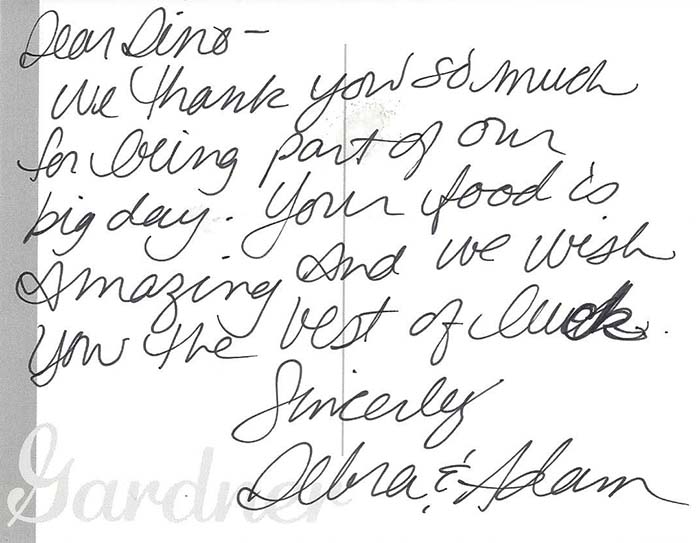 Dear Dino-
We thank you so much
for being part of our
big day. Your food is
Amazing And we wish
you the best of luck.
Sincerely
Debra & Adam
Gardner